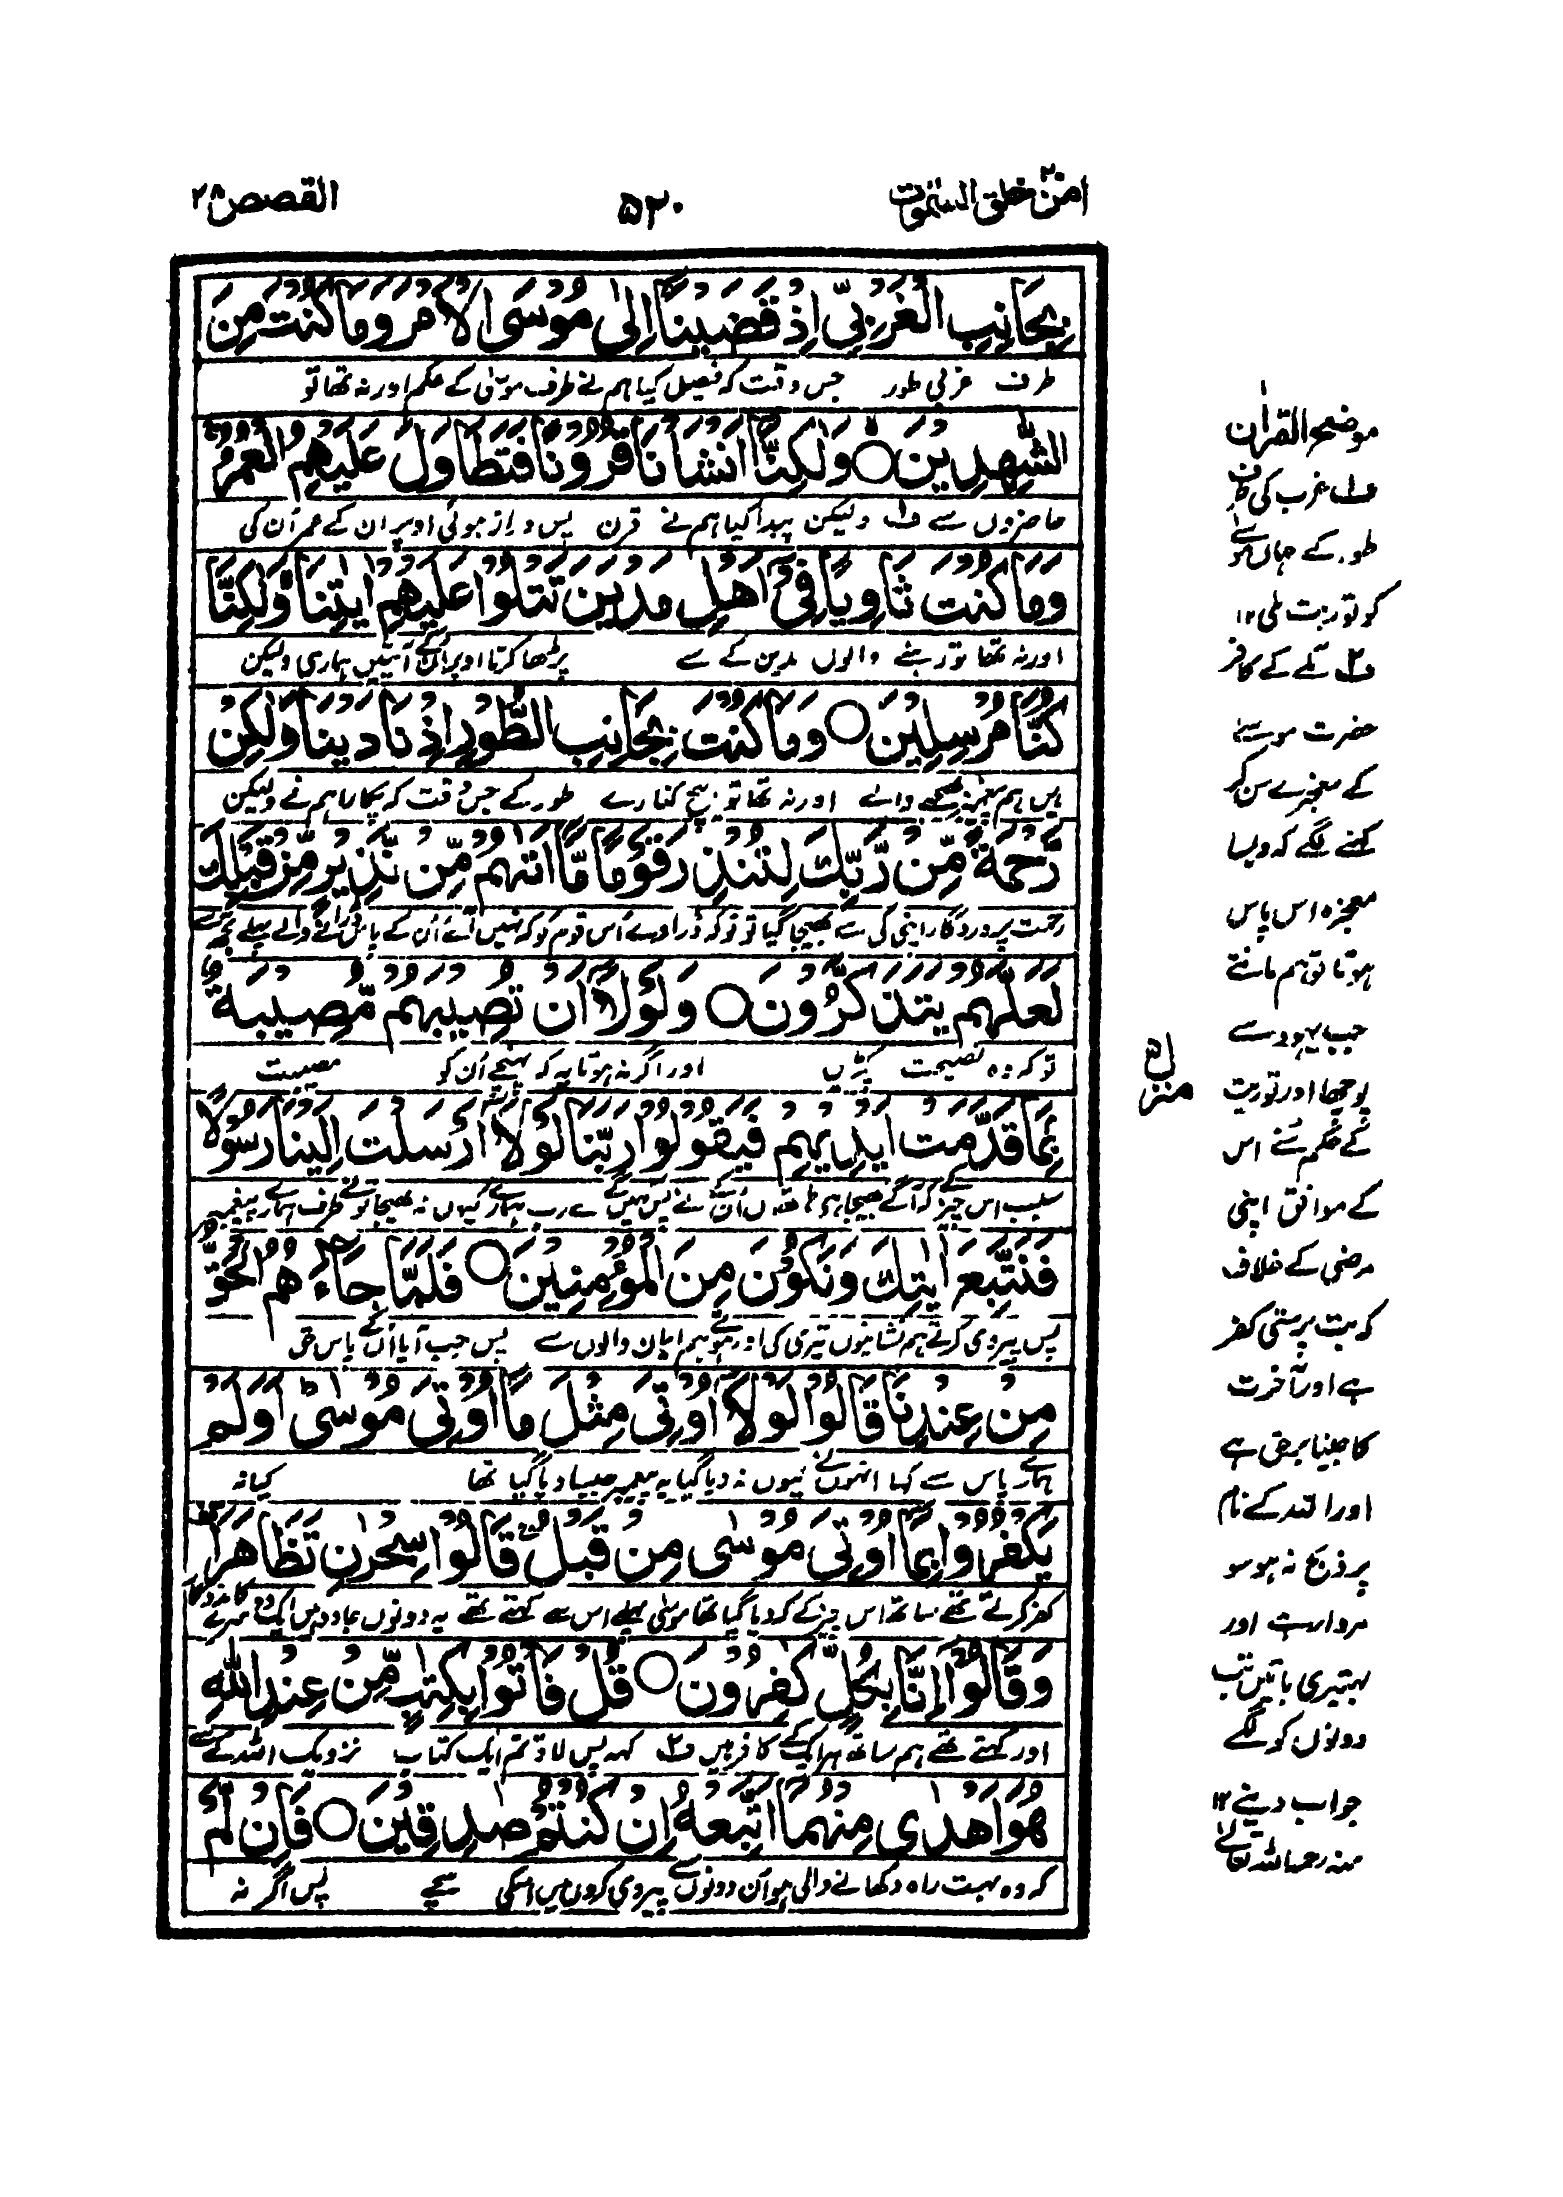 امن خلق السمٰوٰت ۲۰
۵۲۰
القصص ۲۸
بِجَانِبِ الْغَرْبِيِّ اِذْ قَضَيْنَاۤ اِلٰى مُوْسَى الْاَمْرَ وَمَا كُنْتَ مِنَ
طرف غربی طور جس وقت کہ فیصل کیا ہم نے طرف موسیٰ کے حکم اور نہ تھا تو
الشّٰهِدِيْنَ ○ وَلٰكِنَّاۤ اَنْشَاْنَا قُرُوْنًا فَتَطَاوَلَ عَلَيْهِمُ الْعُمُرُ
حاضروں سے ف۱ ولیکن پیدا کیا ہم نے قرن پس دراز ہوئی اوپر ان کے عمر اُن کی
وَمَا كُنْتَ ثَاوِيًا فِيْۤ اَهْلِ مَدْيَنَ تَتْلُوْا عَلَيْهِمْ اٰيٰتِنَا وَلٰكِنَّا
اور نہ تھا تو رہنے والوں مدین کے سے پڑھا کرتا اوپر ان کے آیتیں ہماری ولیکن
كُنَّا مُرْسِلِيْنَ ○ وَمَا كُنْتَ بِجَانِبِ الطُّوْرِ اِذْ نَادَيْنَا وَلٰكِنْ
ہیں ہم پیغمبر بھیجنے والے اور نہ تھا تو بیچ کنارے طور کے جس وقت کہ پکارا ہم نے ولیکن
رَّحْمَةً مِّنْ رَّبِّكَ لِتُنْذِرَ قَوْمًا مَّاۤ اَتٰىهُمْ مِّنْ نَّذِيْرٍ مِّنْ قَبْلِكَ
رحمت پروردگار اپنے کی سے بھیجا گیا تو تو کہ ڈراوے اُس قوم کو کہ نہیں آئے اُن کے پاس ڈرانے والے پہلے تجھ سے
لَعَلَّهُمْ يَتَذَكَّرُوْنَ ○ وَلَوْلَاۤ اَنْ تُصِيْبَهُمْ مُّصِيْبَةٌۢ
تو کہ وہ نصیحت پکڑیں اور اگر نہ ہوتا یہ کہ پہنچے اُن کو مصیبت
بِمَا قَدَّمَتْ اَيْدِيْهِمْ فَيَقُوْلُوْا رَبَّنَا لَوْلَاۤ اَرْسَلْتَ اِلَيْنَا رَسُوْلًا
بسبب اس چیز کے کہ آگے بھیجا ہے ہاتھوں اُن کے نے پس کہیں گے اے رب ہمارے کیوں نہ بھیجا تو نے طرف ہمارے پیغمبر
فَنَتَّبِعَ اٰيٰتِكَ وَنَكُوْنَ مِنَ الْمُؤْمِنِيْنَ ○ فَلَمَّا جَآءَهُمُ الْحَقُّ
پس پیروی کرتے ہم نشانیوں تیری کی اور ہوتے ہم ایمان والوں سے پس جب آیا اُن کے پاس حق
مِنْ عِنْدِنَا قَالُوْا لَوْلَاۤ اُوْتِيَ مِثْلَ مَاۤ اُوْتِيَ مُوْسٰى ؕ اَوَلَمْ
ہمارے پاس سے کہا انہوں نے کیوں نہ دیا گیا یہ پیغمبر جیسا دیا گیا تھا کیا نہ
يَكْفُرُوْا بِمَاۤ اُوْتِيَ مُوْسٰى مِنْ قَبْلُ ۚ قَالُوْا سِحْرٰنِ تَظَاهَرَا
کفر کرتے تھے ساتھ اس چیز کے کہ دیا گیا تھا موسیٰ پہلے اس سے کہتے تھے یہ دونوں جادو ہیں ایک دوسرے کا مددگار
وَقَالُوْۤا اِنَّا بِكُلٍّ كٰفِرُوْنَ ○ قُلْ فَاْتُوْا بِكِتٰبٍ مِّنْ عِنْدِ اللّٰهِ
اور کہتے تھے ہم ساتھ ہر ایک کے کافر ہیں ف۲ کہہ پس لاؤ تم ایک کتاب نزدیک اللہ کے سے
هُوَ اَهْدٰى مِنْهُمَاۤ اَتَّبِعْهُ اِنْ كُنْتُمْ صٰدِقِيْنَ ○ فَاِنْ لَّمْ
کہ وہ بہت راہ دکھانے والی ہو ان دونوں سے پیروی کروں میں اسکی سچے پس اگر نہ
موضح القرآن
ف۱ غرب کی طرف
طور کے جہاں موسےٰ
کو توریت ملی ۱۲
ف۲ مکے کے کافر
حضرت موسےٰ
کے معجزے سن کر
کہنے لگے کہ ویسا
معجزہ اس پاس
ہوتا تو ہم مانتے
جب یہود سے
پوچھا اور توریت
کے حکم سُنے اس
کے موافق اپنی
مرضی کے خلاف
کہ بت پرستی کفر
ہے اور آخرت
کا جینا برحق ہے
اور اللہ کے نام
پر ذبح نہ ہو سو
مردار ہے اور
بہتیری باتیں تب
دونوں کو لگے
جواب دینے ۱۲
منہ رحمہ اللہ تعالےٰ
منزل ۵